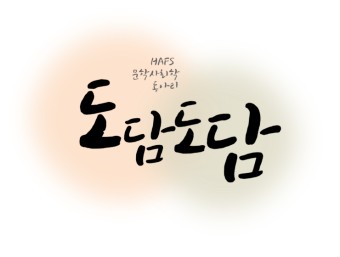 HAFS
문학사회학
동아리
도담도담